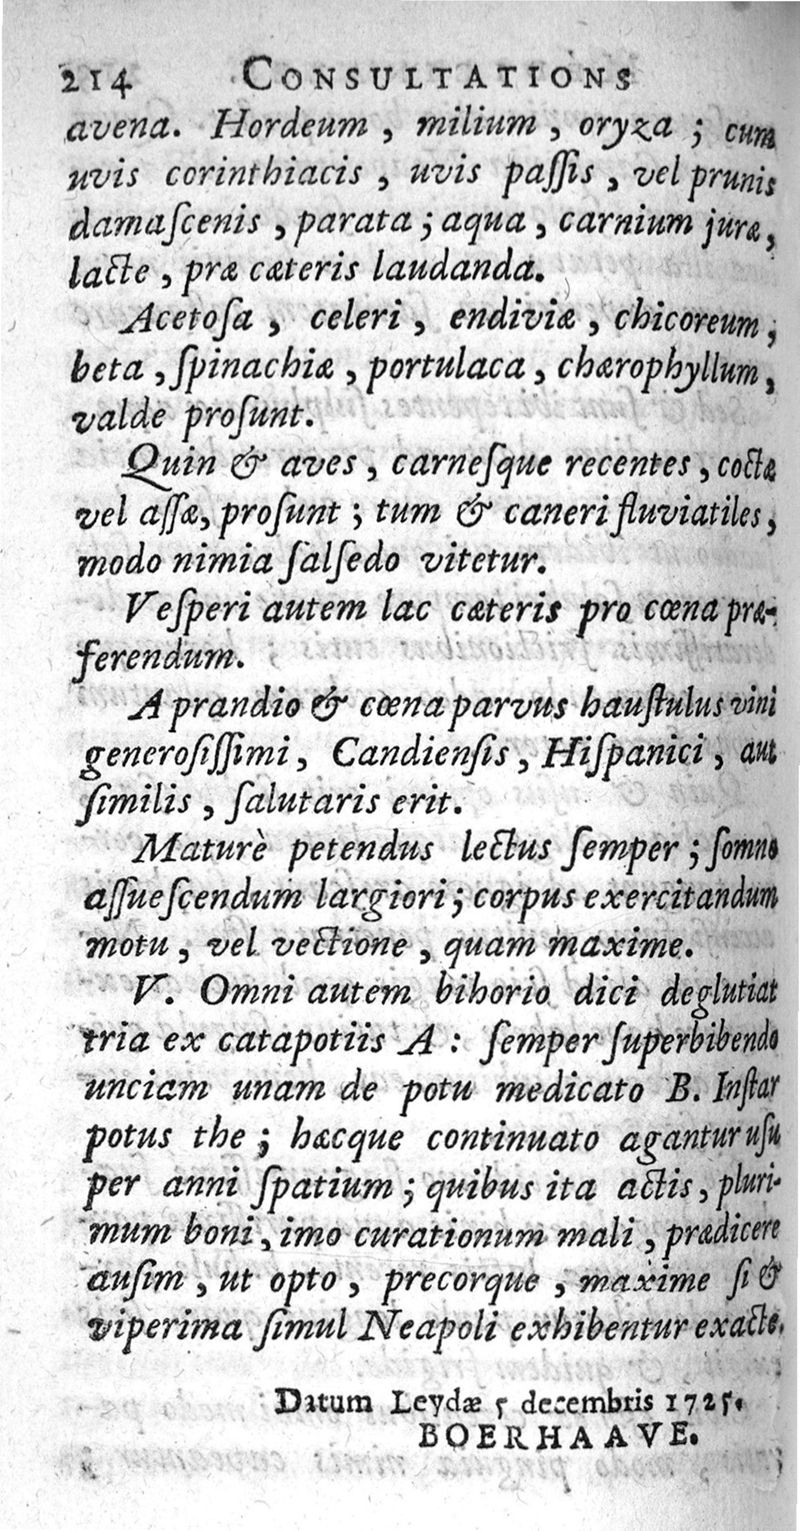 214 CONSULTATIONS
avena. Hordeum, milium, oryza; cum
uvis corinthiacis, uvis paſſis, vel prunis
damaſcenis, parata; aqua, carnium juræ,
lacte, præ cæteris laudanda.
Acetoſa, celeri, endiviæ, chicoreum,
beta, ſpinachiæ, portulaca, chærophyllum,
valde proſunt.
Quin & aves, carneſque recentes, coctæ
vel aſſæ, proſunt; tum & caneri fluviatiles,
modo nimia ſalſedo vitetur.
Veſperi autem lac cæteris pro cœna præ-
ferendum.
A prandio & cœna parvus hauſtulus vini
generoſiſſimi, Candienſis, Hiſpanici, aut
ſimilis, ſalutaris erit.
Maturè petendus lectus ſemper; ſomno
aſſueſcendum largiori; corpus exercitandum
motu, vel vectione, quam maxime.
V. Omni autem bihorio dici deglutiat
tria ex catapotiis A: ſemper ſuperbibendo
unciam unam de potu medicato B. Inſtar
potus the; hæcque continuato agantur uſu
per anni ſpatium; quibus ita actis, pluri-
mum boni, imo curationum mali, prædicere
auſim, ut opto, precorque, maxime ſi &
viperima ſimul Neapoli exhibentur exacte.
Datum Leydæ 5 decembris 1725.
BOERHAAVE.